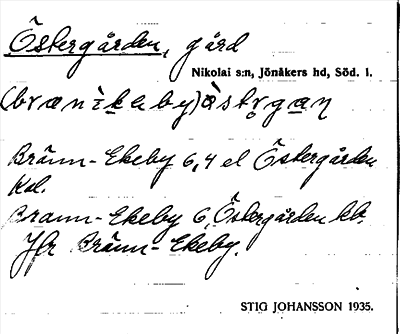 Östergården, gård
Nikolai s:n, Jönåkers hd, Söd. l.
Bränn-Ekeby 6,4 el Östergården
Kd.
Brann-Ekeby 6, Östergården kb.
Jfr Bränn-Ekeby.
STIG JOHANSSON 1935.